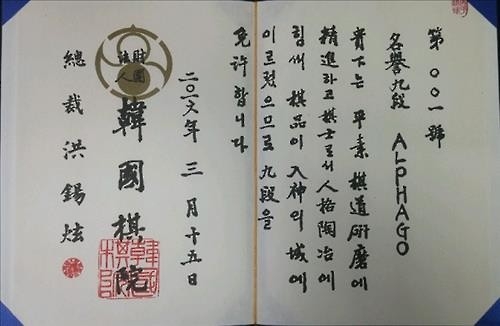 第〇〇一號
名譽九段 ALPHAGO
貴下는 平素 棋道 硏磨에
精進하고 棋士로서 人格陶冶에
힘써 棋品이 入神의 域에
이르렀으므로 九段을
免許합니다
二〇一六年 三月 十五日
財團
法人
韓國棋院
總裁 洪錫炫